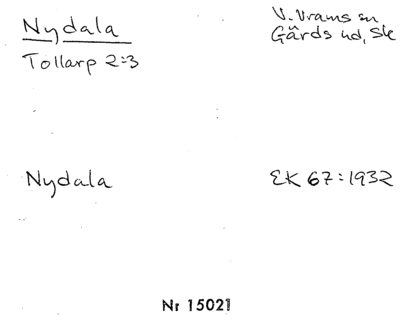 Nydala
V. Vrams sn
Gärds hd, Sk
Tollarp 2:3
Nydala
EK 67:1932
Nr 15021